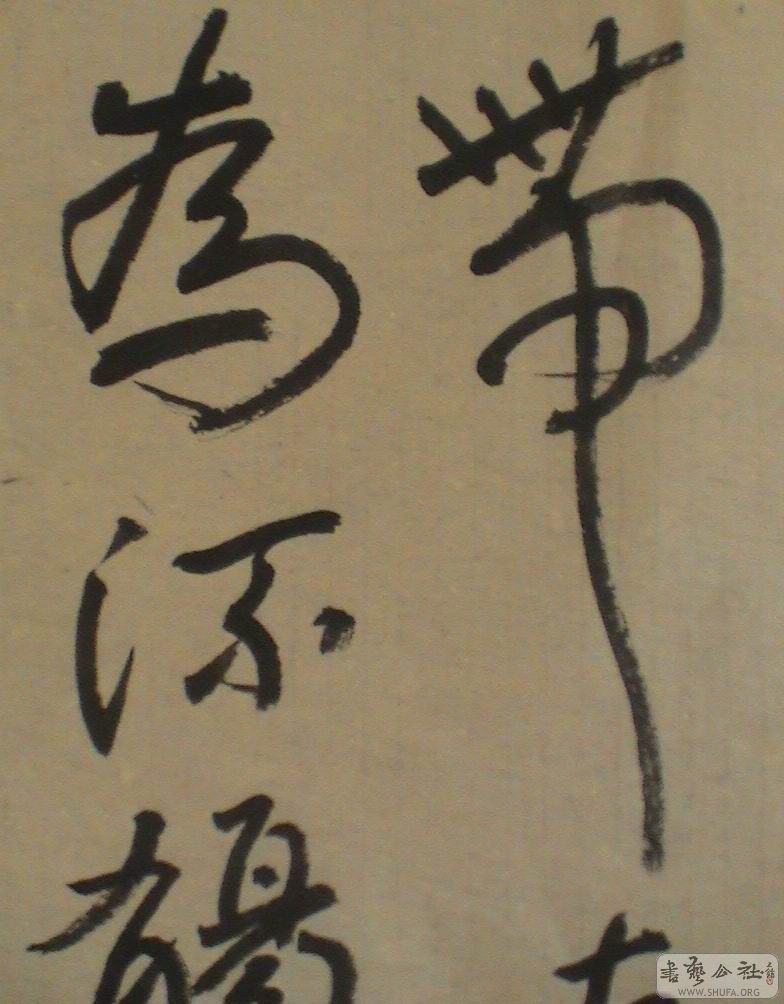 帶左
為流觴
書藝公社
WWW.SHUFA.ORG